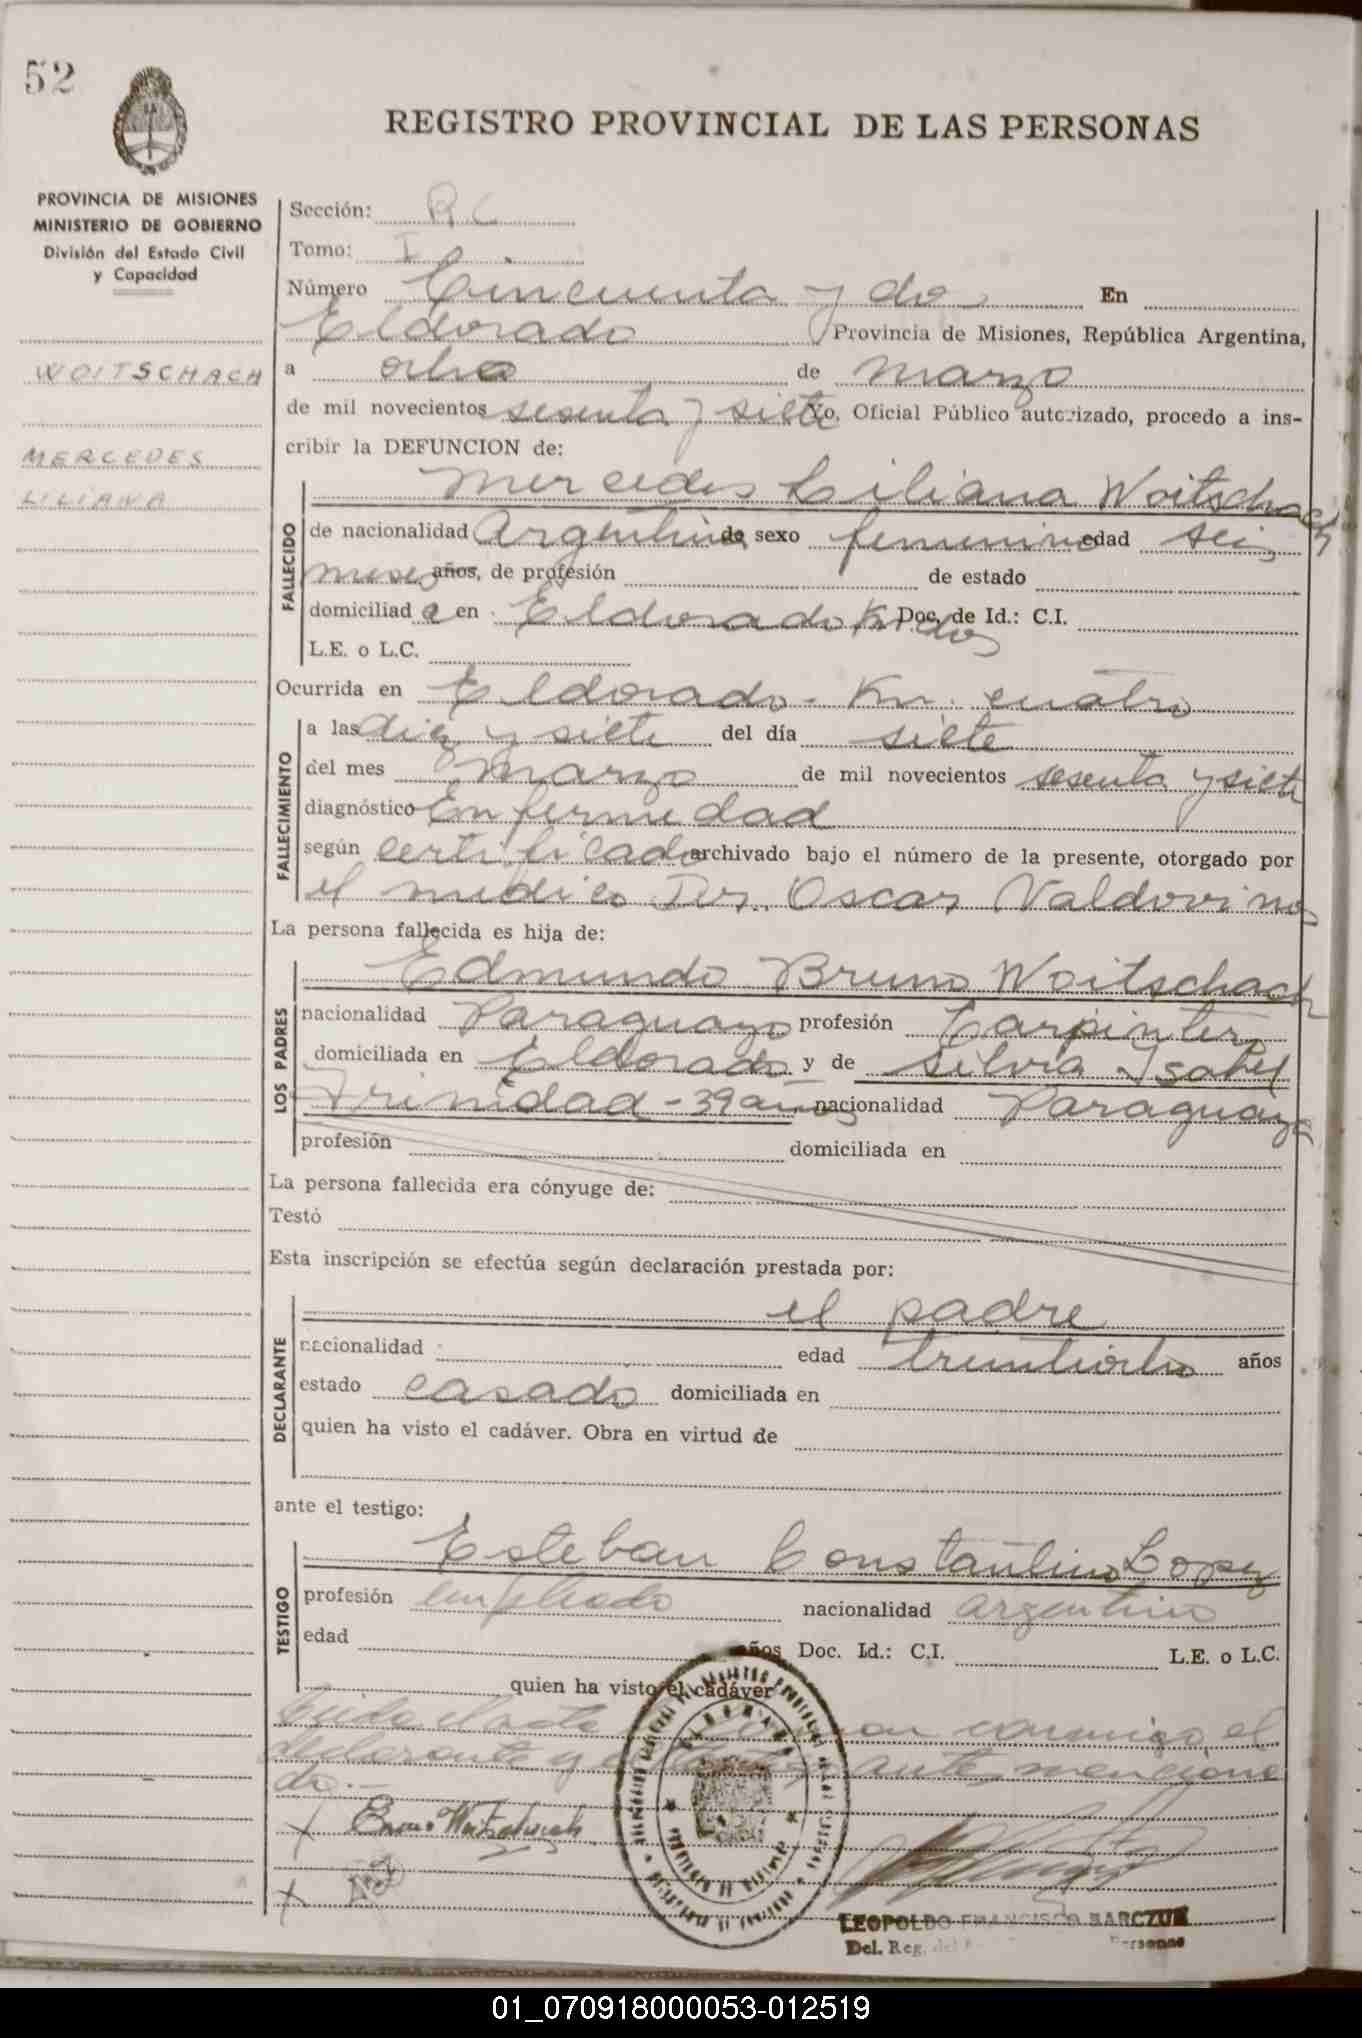 52
REGISTRO PROVINCIAL DE LAS PERSONAS
PROVINCIA DE MISIONES
MINISTERIO DE GOBIERNO
División del Estado Civil
y Capacidad
WOITSCHACH
MERCEDES
LILIANA
Sección: RC
Tomo: I
Número Cincuenta y dos En
Eldorado Provincia de Misiones, República Argentina,
a ocho de marzo
de mil novecientos sesenta y siete Yo, Oficial Público autorizado, procedo a ins-
cribir la DEFUNCION de:
FALLECIDO
Mercedes Liliana Woitschach
de nacionalidad Argentina de sexo femenino edad seis
meses años, de profesión de estado
domiciliad a en Eldorado Km. dos Doc. de Id.: C.I.
L.E. o L.C.
Ocurrida en Eldorado - Km. cuatro
FALLECIMIENTO
a las diez y siete del día siete
del mes marzo de mil novecientos sesenta y siete
diagnóstico Enfermedad
según certificado archivado bajo el número de la presente, otorgado por
el medico Dr. Oscar Valdovinos
La persona fallecida es hija de:
LOS PADRES
Edmundo Bruno Woitschach
nacionalidad Paraguayo profesión Carpintero
domiciliada en Eldorado y de Silvia Isabel
Trinidad - 39 años nacionalidad Paraguaya
profesión domiciliada en
La persona fallecida era cónyuge de:
Testó
Esta inscripción se efectúa según declaración prestada por:
DECLARANTE
el padre
nacionalidad edad treintiocho años
estado casado domiciliada en
quien ha visto el cadáver. Obra en virtud de
ante el testigo:
TESTIGO
Esteban Constantino Lopez
profesión empleado nacionalidad argentino
edad años Doc. Id.: C.I. L.E. o L.C.
quien ha visto el cadáver
Leida el acta conmigo el
declarante y el testigo antes menciona
do.-
Bruno Woitschach
LEOPOLDO FRANCISCO BARCZUK
Del. Reg. del Personas
01_070918000053-012519